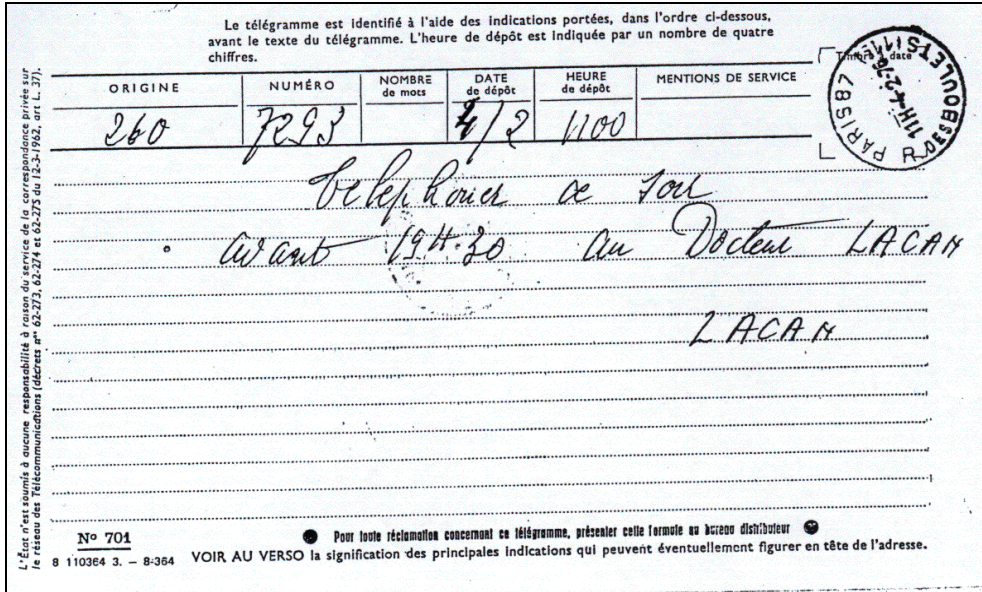 Le télégramme est identifié à l'aide des indications portées, dans l'ordre ci-dessous,
avant le texte du télégramme. L'heure de dépôt est indiquée par un nombre de quatre
chiffres.
Timbre à date
ORIGINE NUMÉRO NOMBRE de mots DATE de dépôt HEURE de dépôt MENTIONS DE SERVICE
260 7293 4/2 1100
PARIS 87 R. DES BOULETS (11e)
11H 4-2
Telephoner ce soir
avant 19H.30 au Docteur LACAN
LACAN
L'État n'est soumis à aucune responsabilité à raison du service de la correspondance privée sur
le réseau des Télécommunications (décrets nos 62-273, 62-274 et 62-275 du 12-3-1962, art L. 37).
N° 701
8 110364 3. – 8-364
Pour toute réclamation concernant ce télégramme, présenter cette formule au bureau distributeur
VOIR AU VERSO la signification des principales indications qui peuvent éventuellement figurer en tête de l'adresse.